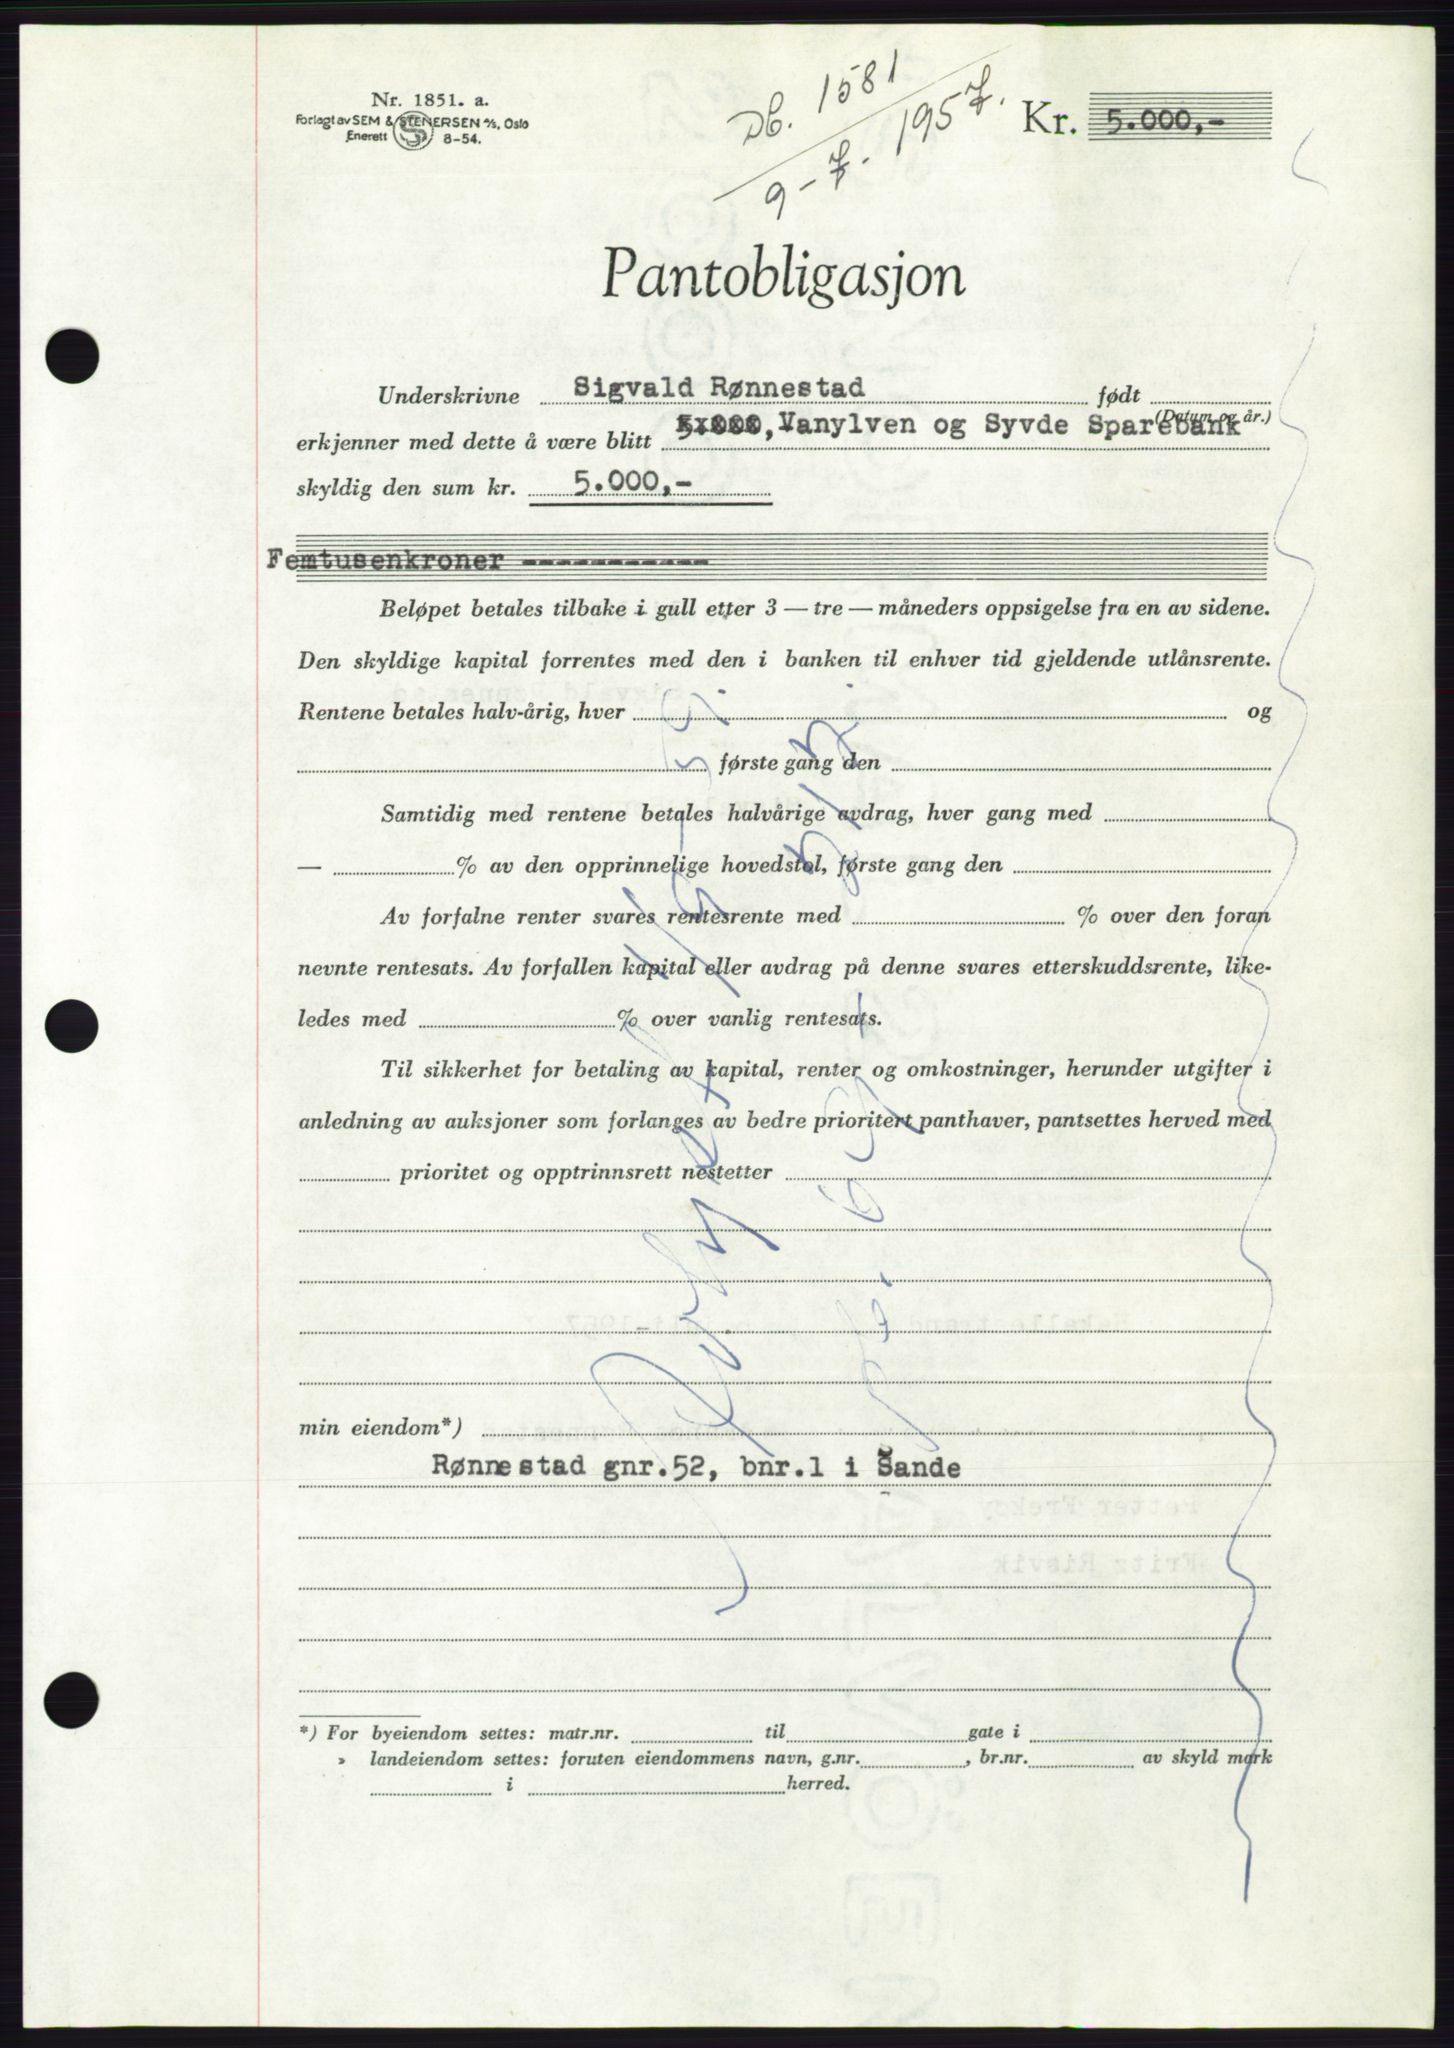 Nr. 1851. a.
Forlagt av SEM & STENERSEN A/S, Oslo
Enerett 8-54.
Db. 1581
9-7-1957.
Kr. 5.000,-
Pantobligasjon
Underskrivne Sigvald Rønnestad født
(Datum og år.)
erkjenner med dette å være blitt Vanylven og Syvde Sparebank
skyldig den sum kr. 5.000,-
Femtusenkroner -----------
Beløpet betales tilbake i gull etter 3 — tre — måneders oppsigelse fra en av sidene.
Den skyldige kapital forrentes med den i banken til enhver tid gjeldende utlånsrente.
Rentene betales halv-årig, hver og
første gang den
Samtidig med rentene betales halvårige avdrag, hver gang med
— % av den opprinnelige hovedstol, første gang den
Av forfalne renter svares rentesrente med % over den foran
nevnte rentesats. Av forfallen kapital eller avdrag på denne svares etterskuddsrente, like-
ledes med % over vanlig rentesats.
Til sikkerhet for betaling av kapital, renter og omkostninger, herunder utgifter i
anledning av auksjoner som forlanges av bedre prioritert panthaver, pantsettes herved med
prioritet og opptrinnsrett nestetter
min eiendom*)
Rønnestad gnr.52, bnr.1 i Sande
*) For byeiendom settes: matr.nr. til gate i
» landeiendom settes: foruten eiendommens navn, g.nr. , br.nr. av skyld mark
i herred.